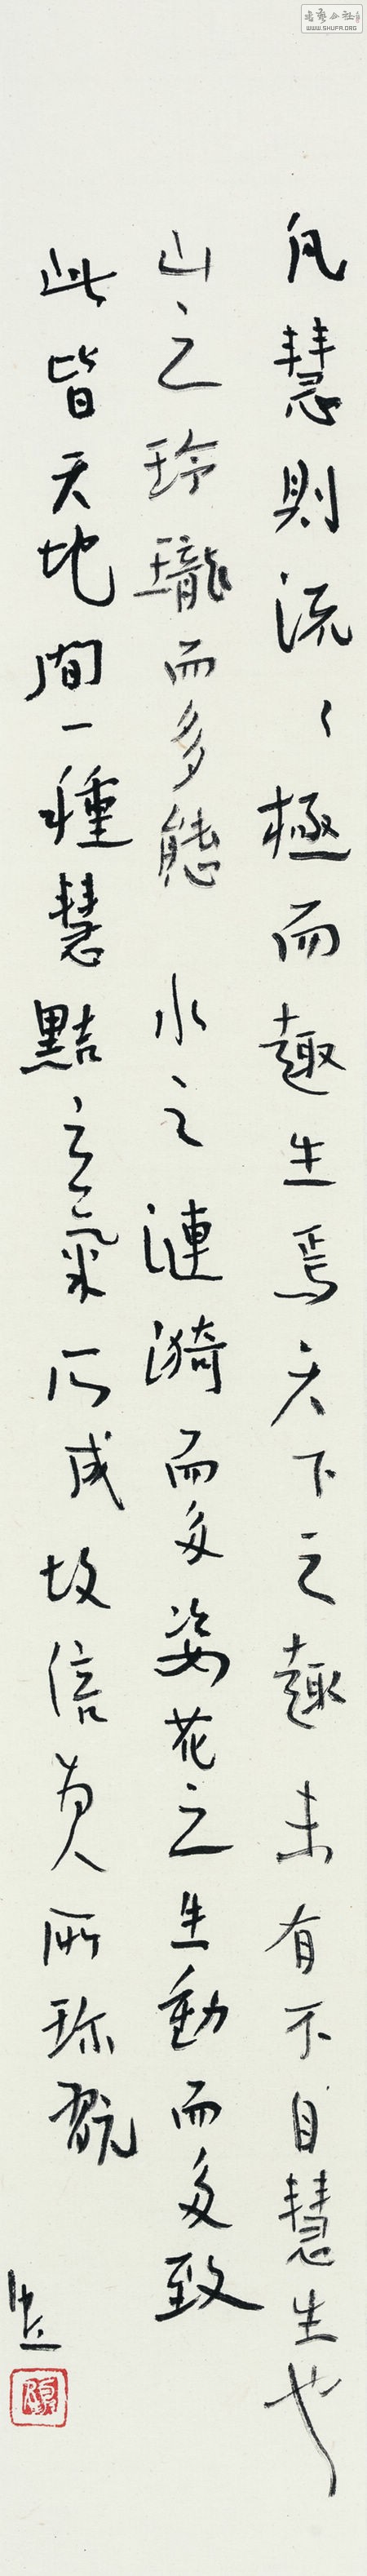 凡慧則流々極而趣生焉天下之趣未有不自慧生也
山之玲瓏而多態 水之漣漪而多姿花之生動而多致
此皆天地間一種慧黠之氣所成故倍為人所珍翫
書藝公社
WWW.SHUFA.ORG